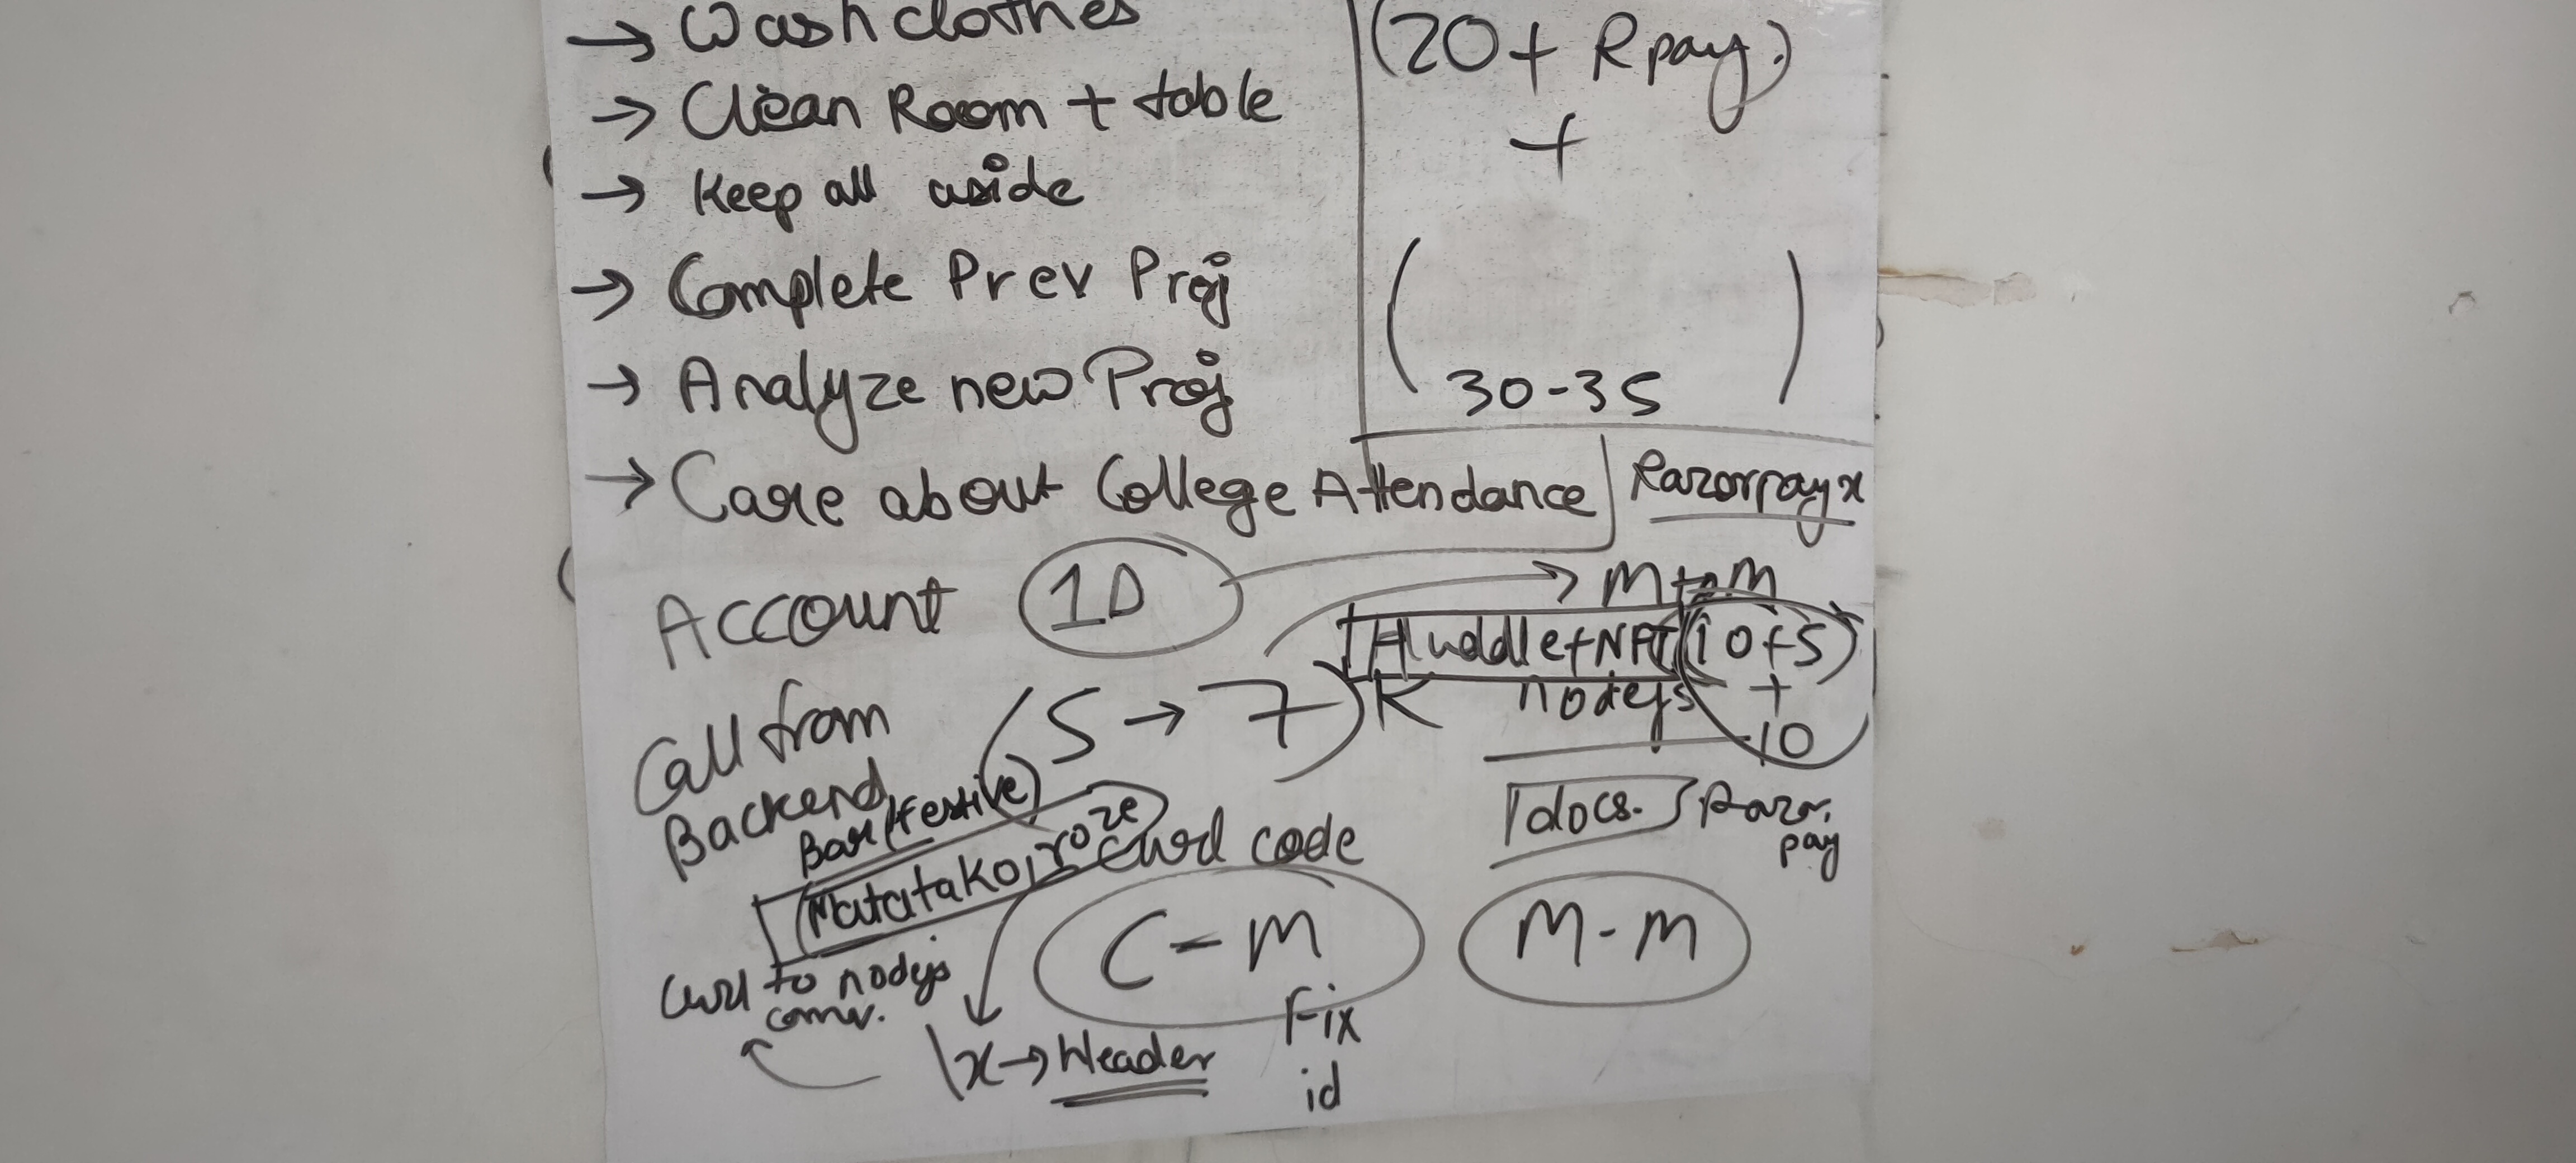 → Wash clothes
→ Clean Room + table
→ Keep all aside
→ Complete Prev Proj
→ Analyze new Proj
→ Care about College Attendance
(20+ Rpay)
+
(
30-35
)
Razorpayx
Account 1D
→ M to M
Huddle+NFT (10+5)
+
10
nodejs
(5 → 7) K
Call from
Backend
Bar (festive)
(Matatakoi, roze
curl code
docs. Razor.
pay
C - M
M - M
Fix
id
curl to nodejs
conv.
\x → Header